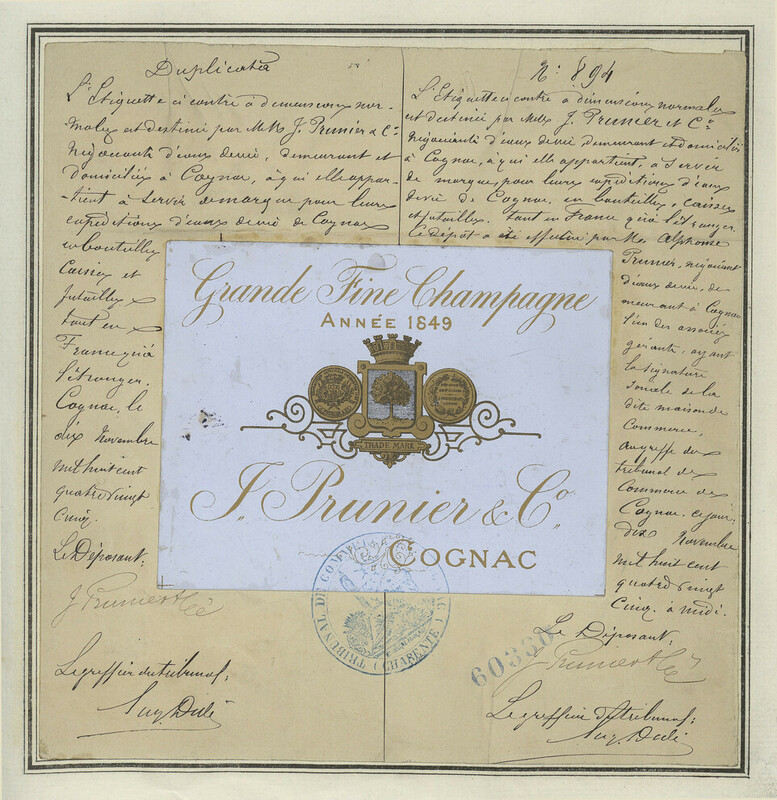 Duplicata
L'Etiquette ci contre à dimensions nor-
males est destinée par MM. J. Prunier & Cie
Négociants d'eaux devie, demeurant et
domiciliés à Cognac, à qui elle appar-
-tient à servir de marque pour leurs
expéditions d'eaux devie de Cognac
en bouteilles
Caisses et
futailles
tant en
France qu'à
l'étranger.
Cognac, le
dix Novembre
mil huit cent
quatre vingt
Cinq.
Le Déposant:
J Prunier & Cie
Le greffier du tribunal:
N: 894
L'Etiquette ci contre à dimensions normales
est destinée par MM. J. Prunier et Co
négociants d'eaux devie demeurant et domiciliés
à Cognac, à qui elle appartient, à servir
de marque, pour leurs expéditions d'eaux
devie de Cognac, en bouteilles, caisses
et futailles, tant en France qu'à l'étranger.
Ce dépôt a été effectué par Mr Alphonse
Prunier, négociant
d'eaux devie, de-
meurant à Cognac
l'un des associés
gérants, ayant
la signature
sociale de la
dite maison de
Commerce,
au greffe du
tribunal de
Commerce de
Cognac, ce jour
dix Novembre
mil huit cent
quatre vingt
Cinq. à midi.
Le Déposant:
J Prunier & Cie
Le greffier du tribunal:
Grande Fine Champagne
ANNÉE 1849
TRADE MARK
J. Prunier & Co.
COGNAC
TRIBUNAL DE COMMERCE
(CHARENTE)
60330